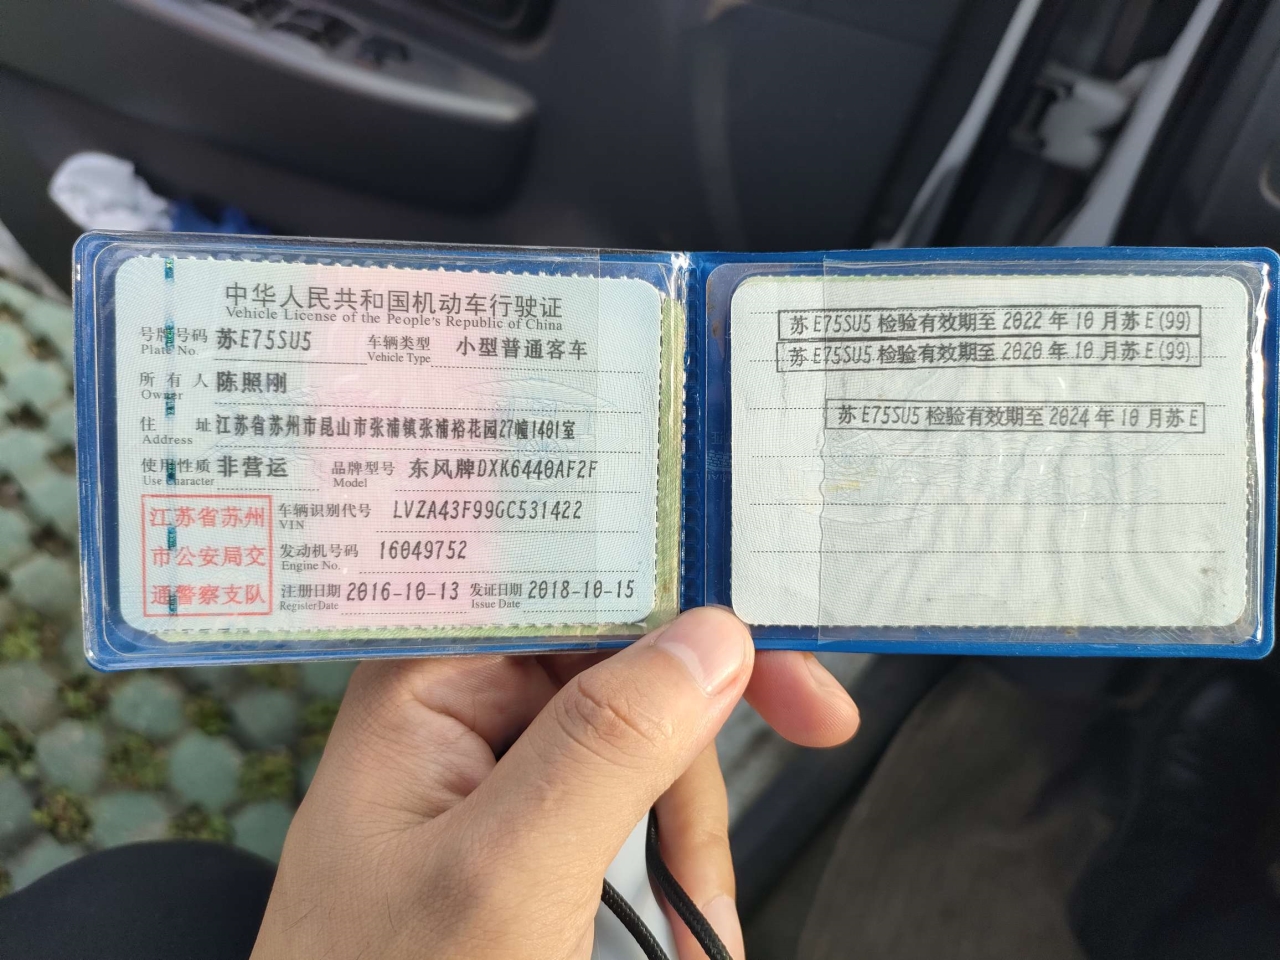 中华人民共和国机动车行驶证
Vehicle License of the People's Republic of China
号牌号码 苏E75SU5 车辆类型 小型普通客车
Plate No. Vehicle Type
所有人 陈照刚
Owner
住址 江苏省苏州市昆山市张浦镇张浦裕花园27幢1401室
Address
使用性质 非营运 品牌型号 东风牌DXK6440AF2F
Use Character Model
江苏省苏州
市公安局交
通警察支队
车辆识别代号 LVZA43F99GC531422
VIN
发动机号码 16049752
Engine No.
注册日期 2016-10-13 发证日期 2018-10-15
Register Date Issue Date
苏E75SU5检验有效期至2022年10月苏E(99)
苏E75SU5检验有效期至2020年10月苏E(99)
苏E75SU5检验有效期至2024年10月苏E